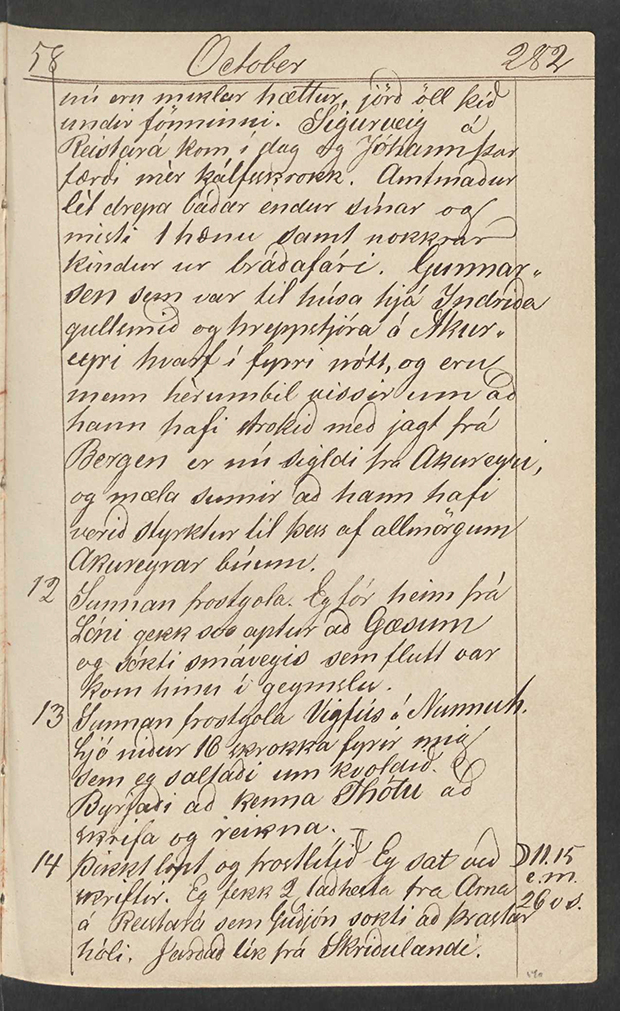 58 October 282
nú eru miklar hættur, jörð öll þíð
undir fönninni. Sigurveig á
Reistará kom í dag og Jóhann þar
færði mér kálfskrokk. Amtmaður
lét drepa báðar endur sínar og
misti 1 hænu samt nokkrar
kindur ur bráðafári. Gunnar„
sen sem var til húsa hjá Indriða
gullsmið og hreppstjóra á Akur„
eyri hvarf í fyrri nótt, og eru
menn hérumbil vissir um að
hann hafi strokið með jagt frá
Bergen er nú sigldi frá Akureyri,
og mæla sumir að hann hafi
verið styrktur til þess af allmörgum
Akureyrar búum.
12 Sunnan frostgola. Eg fór heim frá
Lóni gekk svo aptur að Gæsum
og sókti smávegis sem flutt var
kom hinu í geymslu.
13 Sunnan frostgola Vigfús á Nunnuh.
hjó niður 16 skrokka fyrir mig
sem eg saltaði um kvoldið.
Byrjaði að kenna Thótu að
skrifa og reikna.
14 Þikkt lopt og frostlítið Eg sat við
skriftir. Eg fekk 2 taðhesta fra Arna
á Reistará sem Guðjón sokti að Þrastar
hóli. Jarðað lík frá Skriðulandi.
11.15
e.m.
26 v s.